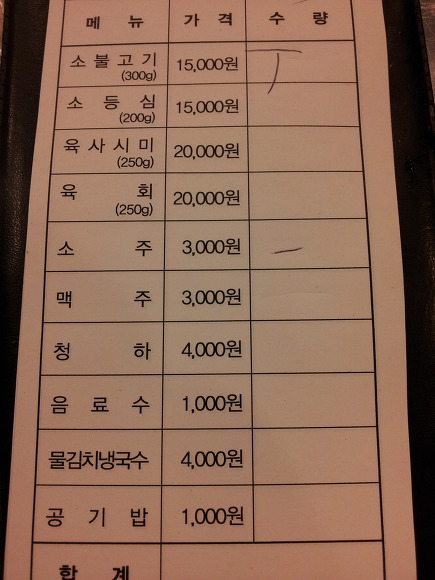 메뉴 가격 수량
소불고기 15,000원 丁
(300g)
소등심 15,000원
(200g)
육사시미 20,000원
(250g)
육회 20,000원
(250g)
소주 3,000원 一
맥주 3,000원
청하 4,000원
음료수 1,000원
물김치냉국수 4,000원
공기밥 1,000원
합계